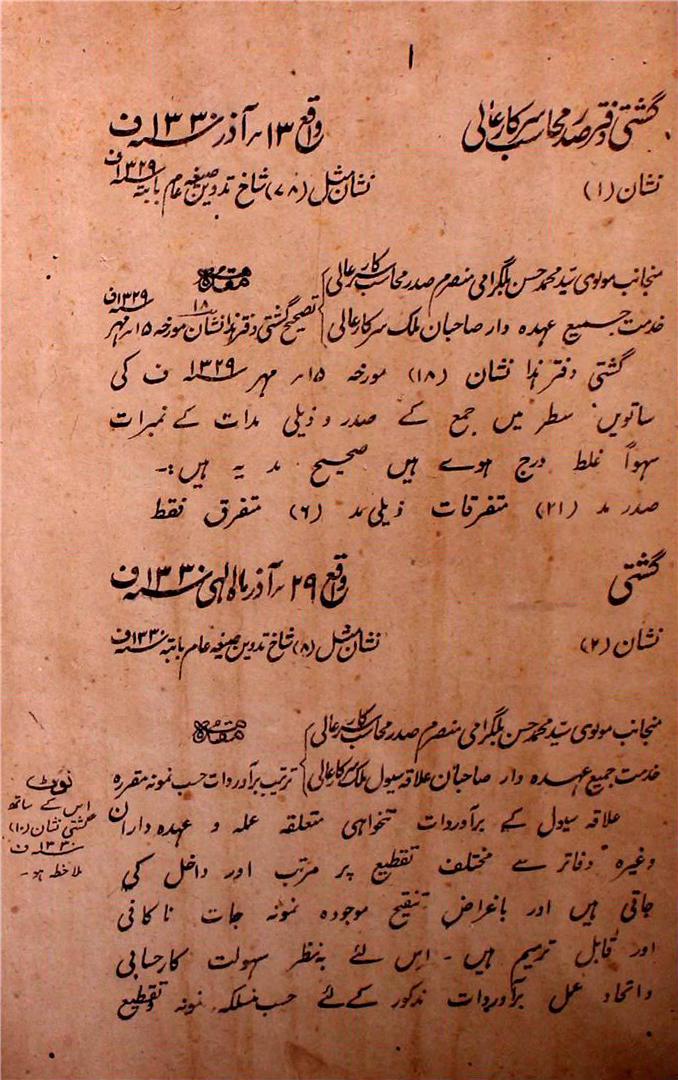 ۱
گشتی دفتر صدر محاسب سرکار عالی واقع ۱۳ ؍ آذر سنہ ۱۳۳۰ ف
نشان (۱) نشان مثل (۷۸) شاخ تدوین صیغہ عام بابتہ سنہ ۱۳۲۹ ف
منجانب مولوی سید محمد حسن بلگرامی منصرم صدر محاسب سرکار عالی مقدمہ
خدمت جمیع عہدہ دار صاحبان ملک سرکار عالی تصحیح گشتی دفتر ہذا نشان ۱۸ مورخہ ۱۵ ؍ مہر سنہ ۱۳۲۹ ف
گشتی دفتر ہذا نشان (۱۸) مورخہ ۱۵ ؍ مہر سنہ ۱۳۲۹ ف کی
ساتویں سطر میں جمع کے صدر و ذیلی مدات کے نمبرات
سہواً غلط درج ہوے ہیں صحیح مد یہ ہیں :۔
صدر مد (۲۱) متفرقات ذیلی مد (۶) متفرق فقط
گشتی واقع ۲۹ ؍ آذر ماہ الٰہی سنہ ۱۳۳۰ ف
نشان (۲) نشان مثل (۸) شاخ تدوین صیغہ عام بابتہ سنہ ۱۳۳۰ ف
منجانب مولوی سید محمد حسن بلگرامی منصرم صدر محاسب سرکار عالی مقدمہ
خدمت جمیع عہدہ دار صاحبان علاقہ سیول ملک سرکار عالی ترتیب برآوردات حسب نمونہ مقررہ
علاقہ سیول کے برآوردات تنخواہی متعلقہ عملہ و عہدہ داران
وغیرہ دفاتر سے مختلف تقطیع پر مرتب اور داخل کی
جاتی ہیں اور باغراض تنقیح موجودہ نمونہ جات ناکافی
اور قابل ترمیم ہیں ۔ اس لئے بہ نظر سہولت کار حسابی
و اتحاد عمل برآوردات مذکور کے لئے حسب منسلکہ نمونہ و تقطیع
نوٹ
اس کے ساتھ
گشتی نشان (۱۰)
سنہ ۱۳۳۰ ف
ملاحظہ ہو ۔